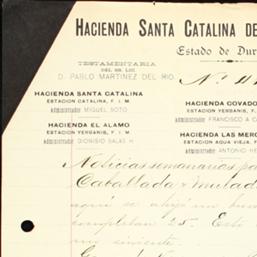 HACIENDA SANTA CATALINA DE
Estado de Dur
TESTAMENTARIA
DEL SR. LIC.
D. PABLO MARTINEZ DEL RIO.
No.
HACIENDA SANTA CATALINA
ESTACION CATALINA, F. I. M.
ADMINISTRADOR MIGUEL SOTO
HACIENDA COVADO
ESTACION YERBANIS, F.
ADMINISTRADOR FRANCISCO A
HACIENDA EL ALAMO
ESTACION YERBANIS, F. I. M.
ADMINISTRADOR DIONISIO SALAS H
HACIENDA LAS MERC
ESTACION AGUA VIEJA, F
ADMINISTRADOR ANTONIO HE
Noticias semanarias pa
Caballada y mulada
aquí se
completan 25. Esto